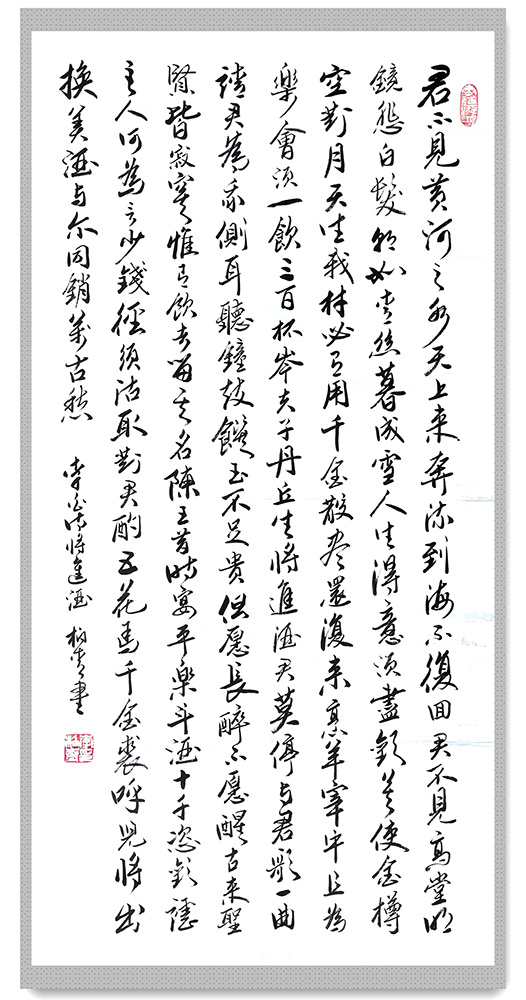 君不見黃河之水天上来奔流到海不復回君不見高堂明
鏡悲白髮朝如青絲暮成雪人生得意須盡歡莫使金樽
空對月天生我材必有用千金散尽還復来烹羊宰牛且為
樂會須一飲三百杯岑夫子丹丘生將進酒君莫停与君歌一曲
請君為我側耳聽鐘鼓饌玉不足貴但愿長醉不愿醒古来聖
賢皆寂寞惟有飲者留其名陳王昔時宴平樂斗酒十千恣歡謔
主人何為言少錢徑須沽取對君酌五花馬千金裘呼兒將出
換美酒与尔同銷萬古愁 李白詩將進酒 柏青書